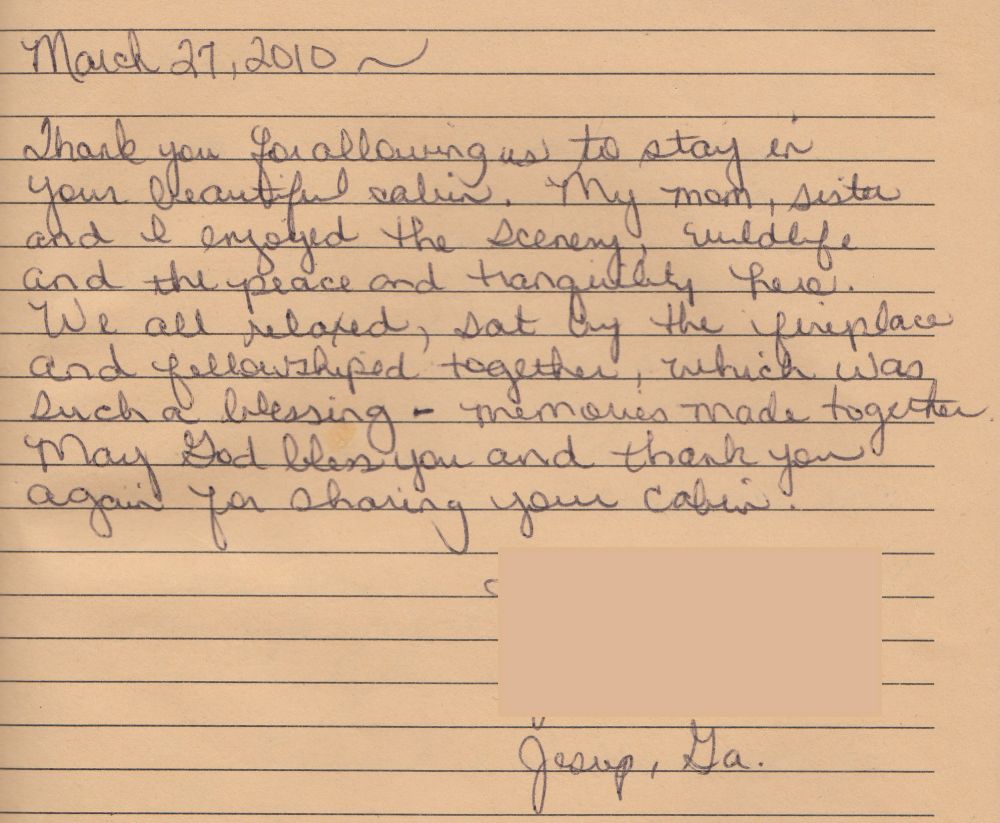 March 27, 2010 ~
Thank you for allowing us to stay in
your beautiful cabin. My mom, sister
and I enjoyed the scenery, wildlife
and the peace and tranquility here.
We all relaxed, sat by the fireplace
and fellowshiped together, which was
such a blessing - memories made together.
May God bless you and thank you
again for sharing your cabin.
Jesup, Ga.